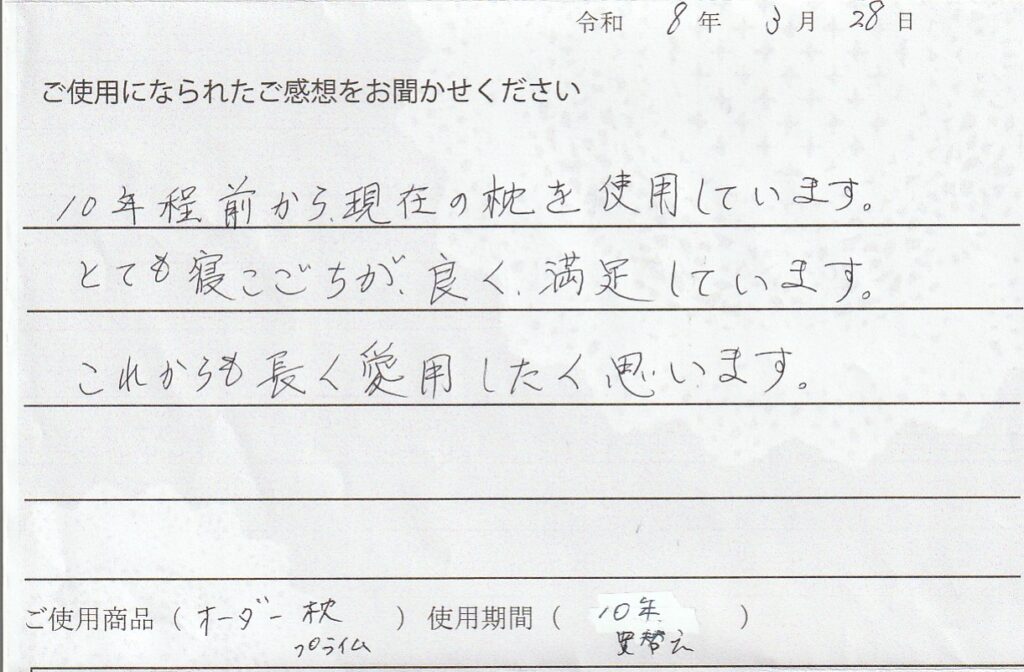 令和 8年 3月 28日
ご使用になられたご感想をお聞かせください
10年程前から、現在の枕を使用しています。
とても寝ごごちが、良く、満足しています。
これからも長く愛用したく思います。
ご使用商品（オーダー枕）使用期間（10年）
プライム 買替え